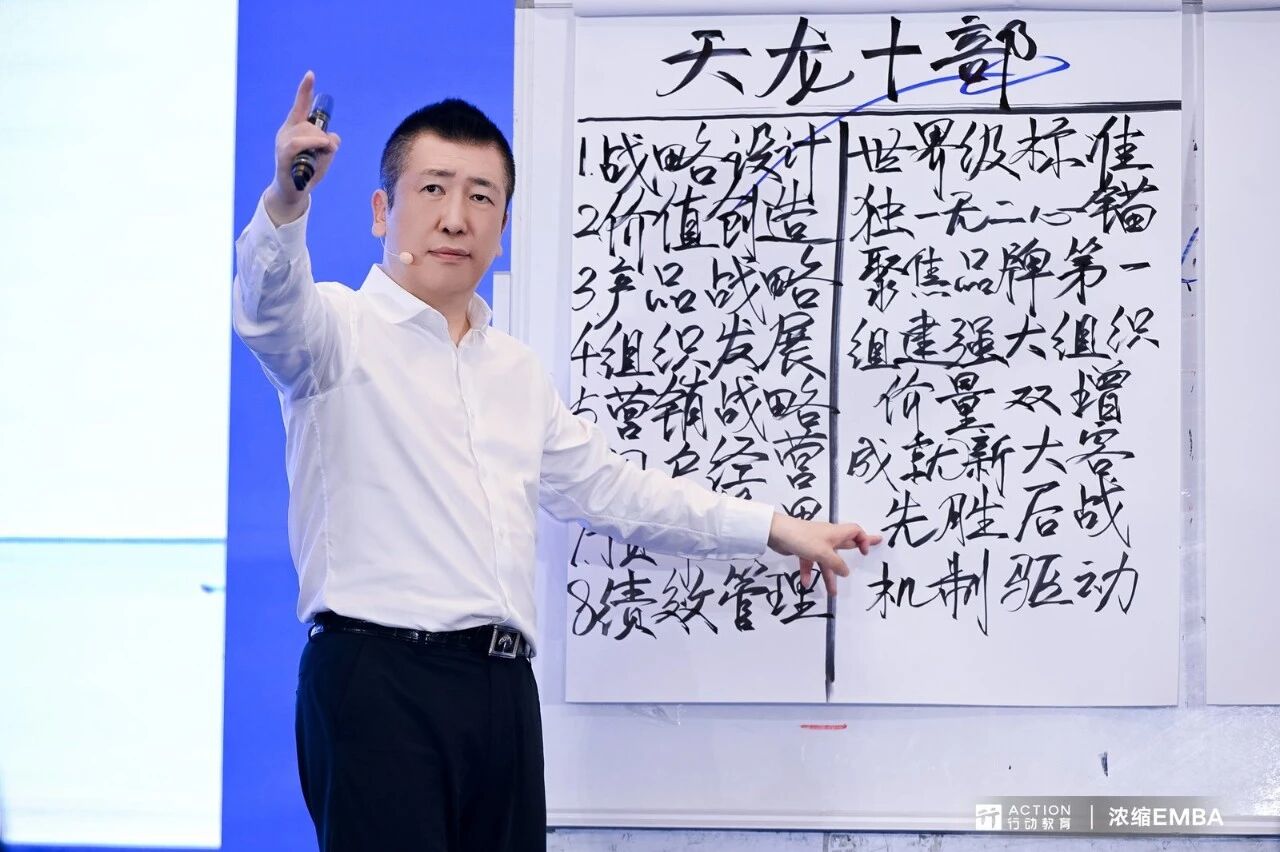 天龙十部
1.战略设计 世界级标准
2.价值创造 独一无二心锚
3.产品战略 聚焦品牌第一
4.组织发展 组建强大组织
5.营销战略 价量双增
户经营 成就新大客
先胜后战
8.绩效管理 机制驱动
ACTION
行动教育
浓缩EMBA